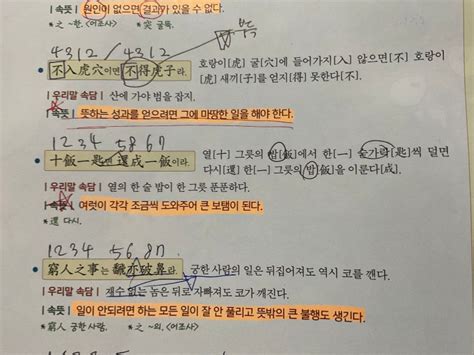 | 속뜻 | 원인이 없으면 결과가 있을 수 없다.
* 之 ~한. <어조사> * 突 굴뚝.
4 3 1 2 / 4 3 1 2
不入虎穴이면 不得虎子라. 호랑이[虎] 굴[穴]에 들어가지[入] 않으면[不] 호랑이
[虎] 새끼[子]를 얻지[得] 못한다[不].
| 우리말 속담 | 산에 가야 범을 잡지.
| 속뜻 | 뜻하는 성과를 얻으려면 그에 마땅한 일을 해야 한다.
1 2 3 4 5 8 6 7
十飯一匙면 還成一飯이라. 열[十] 그릇의 밥[飯]에서 한[一] 숟가락[匙]씩 덜면
다시[還] 한[一] 그릇의 밥[飯]을 이룬다[成].
| 우리말 속담 | 열의 한 술 밥이 한 그릇 푼푼하다.
| 속뜻 | 여럿이 각각 조금씩 도와주어 큰 보탬이 된다.
* 還 다시.
1 2 3 4 5 6 8 7
窮人之事는 飜亦破鼻라. 궁한 사람의 일은 뒤집어져도 역시 코를 깬다.
| 우리말 속담 | 재수 없는 놈은 뒤로 자빠져도 코가 깨진다.
| 속뜻 | 일이 안되려면 하는 모든 일이 잘 안 풀리고 뜻밖의 큰 불행도 생긴다.
* 窮人 궁한 사람. * 之 ~의. <어조사>